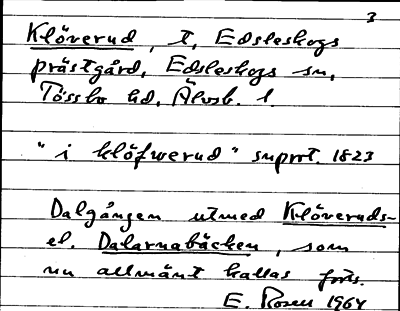 3
Klöverud, t, Edsleskogs
prästgård, Edsleskogs sn,
Tössbo hd, Älvsb. l
"i klöfwerud" suprot. 1823
Dalgången utmed Klöveruds-
el. Dalarnabäcken, som
nu allmänt kallas förs.
E. Rosen 1964